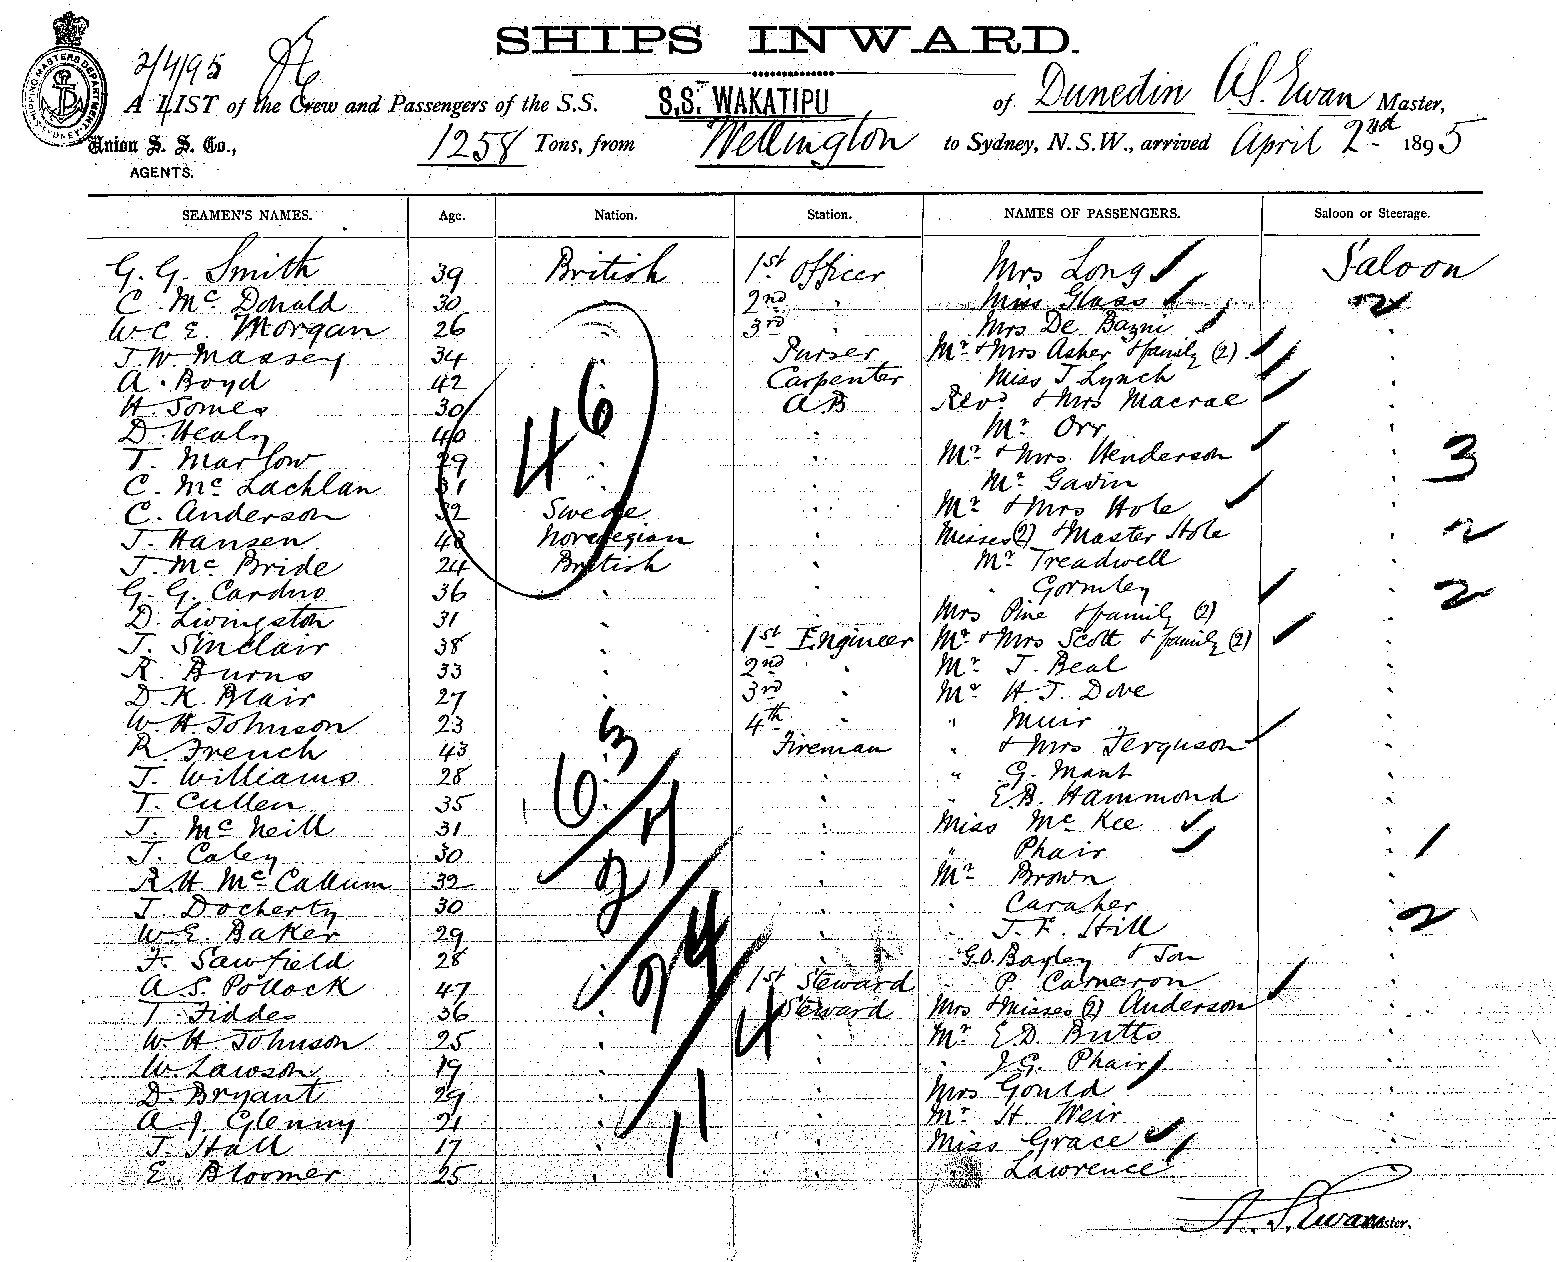 SHIPS INWARD.
2/4/95
A LIST of the Crew and Passengers of the S.S. S.S. WAKATIPU of Dunedin A.S. Ewan Master,
Union S. S. Co., AGENTS. 1258 Tons, from Wellington to Sydney, N.S.W., arrived April 2nd 1895
SEAMEN'S NAMES. Age. Nation. Station. NAMES OF PASSENGERS. Saloon or Steerage.
G. G. Smith 39 British 1st Officer Mrs Long Saloon
C. Mc Donald 30 " 2nd " Miss Glass 2
W C E. Morgan 26 " 3rd " Mrs De Bazni "
J. W. Massey 34 " Purser Mr & Mrs Asher & family (2) "
A. Boyd 42 " Carpenter Miss J Lynch "
H. Somes 30 " AB Revd & Mrs Macrae "
D. Healy 40 " " Mr Orr "
T. Marlow 29 " " Mr & Mrs Henderson " 3
C. Mc Lachlan 31 " " Mr Gavin "
C. Anderson 32 Swede " Mr & Mrs Hole "
J. Hansen 43 Norwegian " Misses (2) & Master Hole " 2
J. Mc Bride 24 British " Mr Treadwell "
G. G. Carduo 36 " " " Gormley " 2
D. Livingston 31 " " Mrs Pine & family (2) "
J. Sinclair 38 " 1st Engineer Mr & Mrs Scott & family (2) "
R. Burns 33 " 2nd " Mr J. Beal "
D. K. Blair 27 " 3rd " Mr H. J. Dove "
W. H. Johnson 23 " 4th " " Muir "
R. French 43 " Fireman " & Mrs Ferguson "
J. Williams 28 " " " G. Mant "
T. Cullen 35 " " " E.B. Hammond "
J. Mc Neill 31 " " Miss Mc Kee "
J. Caley 30 " " " Phair " 1
R. H. Mc Callum 32 " " Mr Brown "
J. Docherty 30 " " " Caraher "
W. E. Baker 29 " " " J. F. Hill " 2
F. Sawfield 28 " " " G.O. Bayley & Son "
A. S. Pollock 47 " 1st Steward " P. Cameron "
T. Fiddes 36 " Steward Mrs & Misses (2) Anderson "
W. H. Johnson 25 " " Mr E. D. Butts "
W. Lawson 19 " " " J.G. Phair "
D. Bryant 29 " " Mrs Gould "
A. J. Glenny 21 " " Mr H. Weir "
J. Hall 17 " " Miss Grace "
E. Bloomer 25 " " " Lawrence "
46
63
27
24
4
11
A. S. Ewan Master.